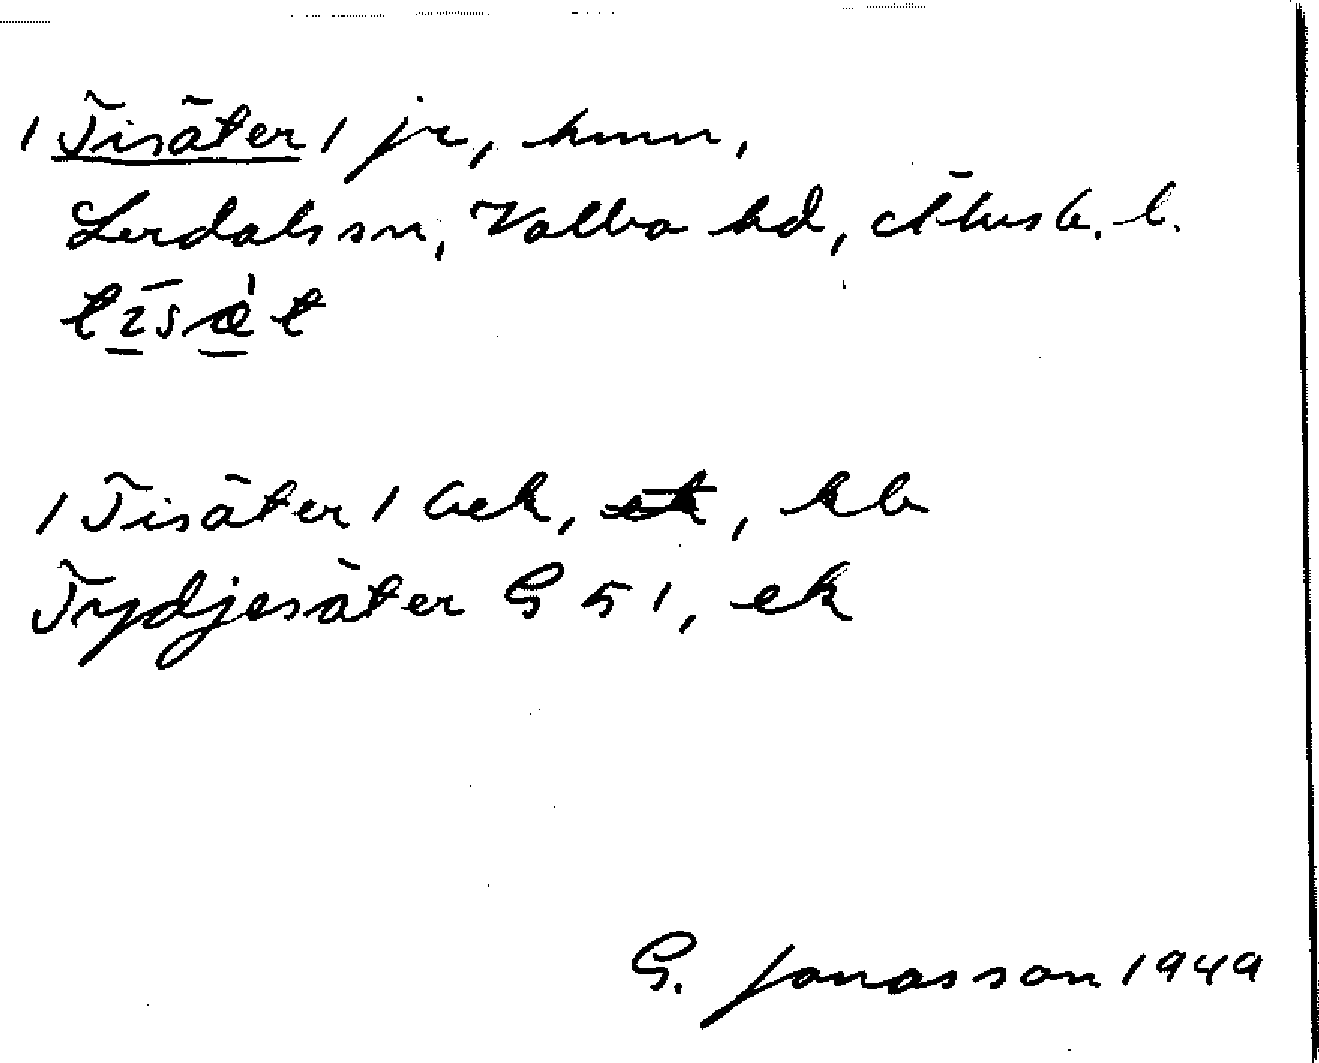 /Tisäter/ jr, hmn,
Lerdals sn, Valbo hd, Älvsb. l.
tīsæ̀t
/Tisäter/ bek, ek, kb
Tydjesäter G 51, ek
G. Jonasson 1949